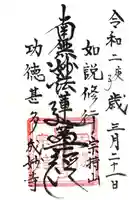 令和二庚子歳 三月二十一日
如説修行 宗持山
南無妙法蓮華経
功徳甚多 妙寺